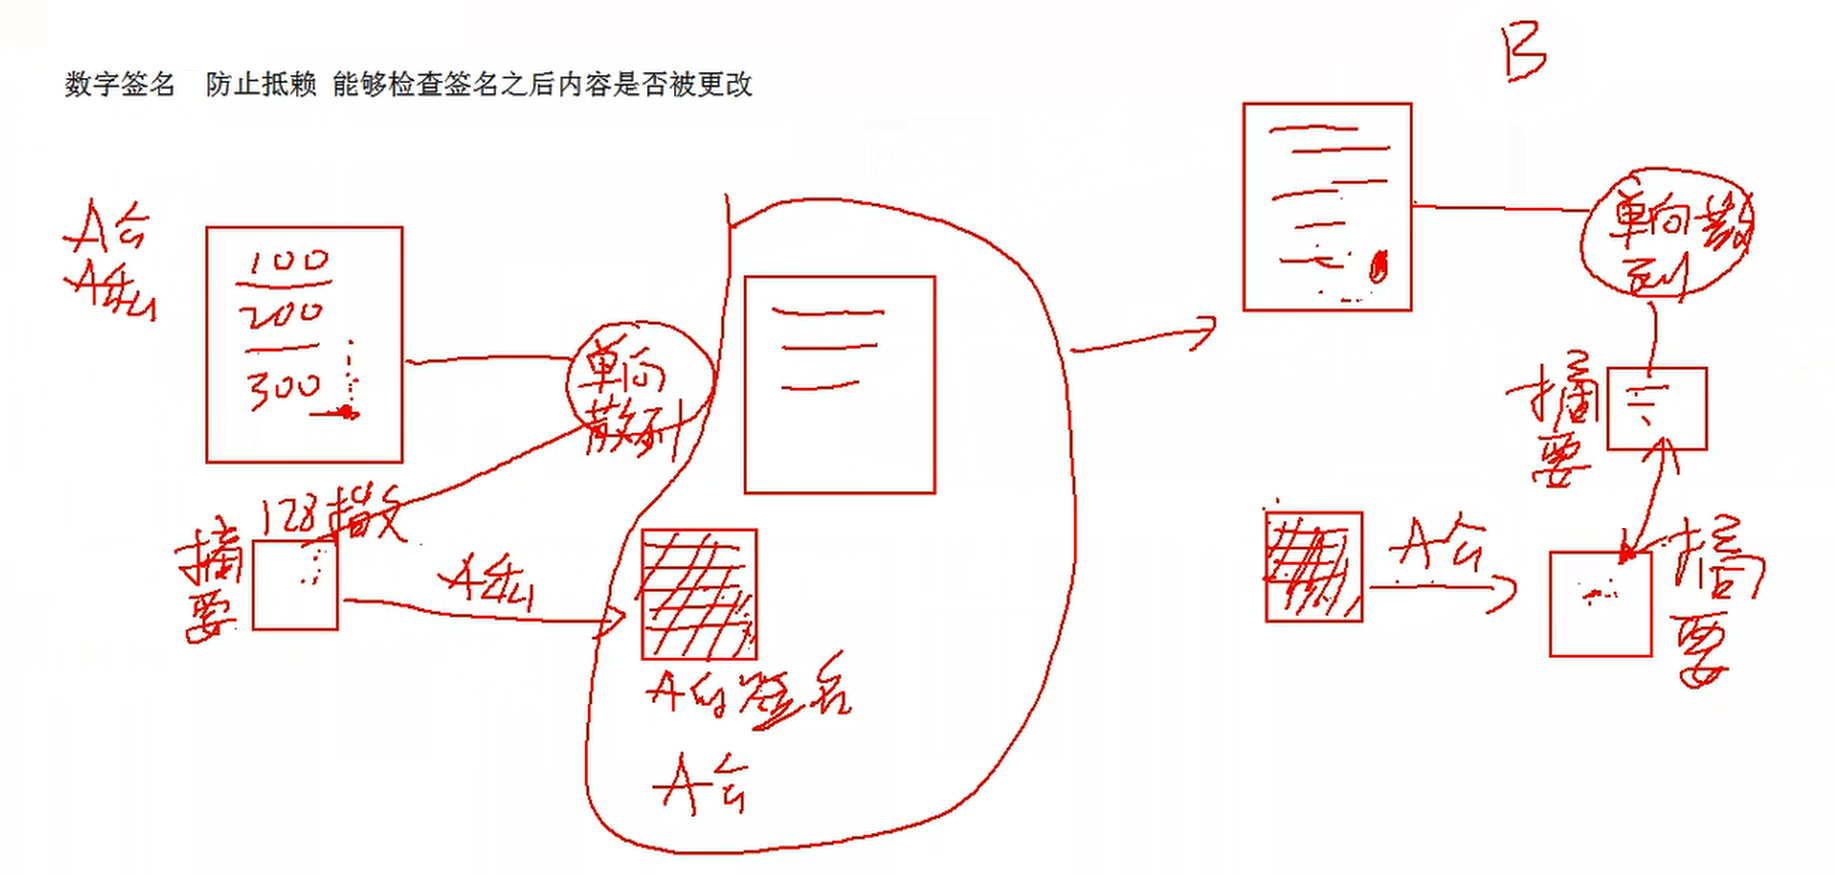 数字签名 防止抵赖 能够检查签名之后内容是否被更改
B
A公
A私
100
200
300
单向
散列
128
摘
要
A私
A的签名
A公
单向散
列
摘
要
A公
摘
要